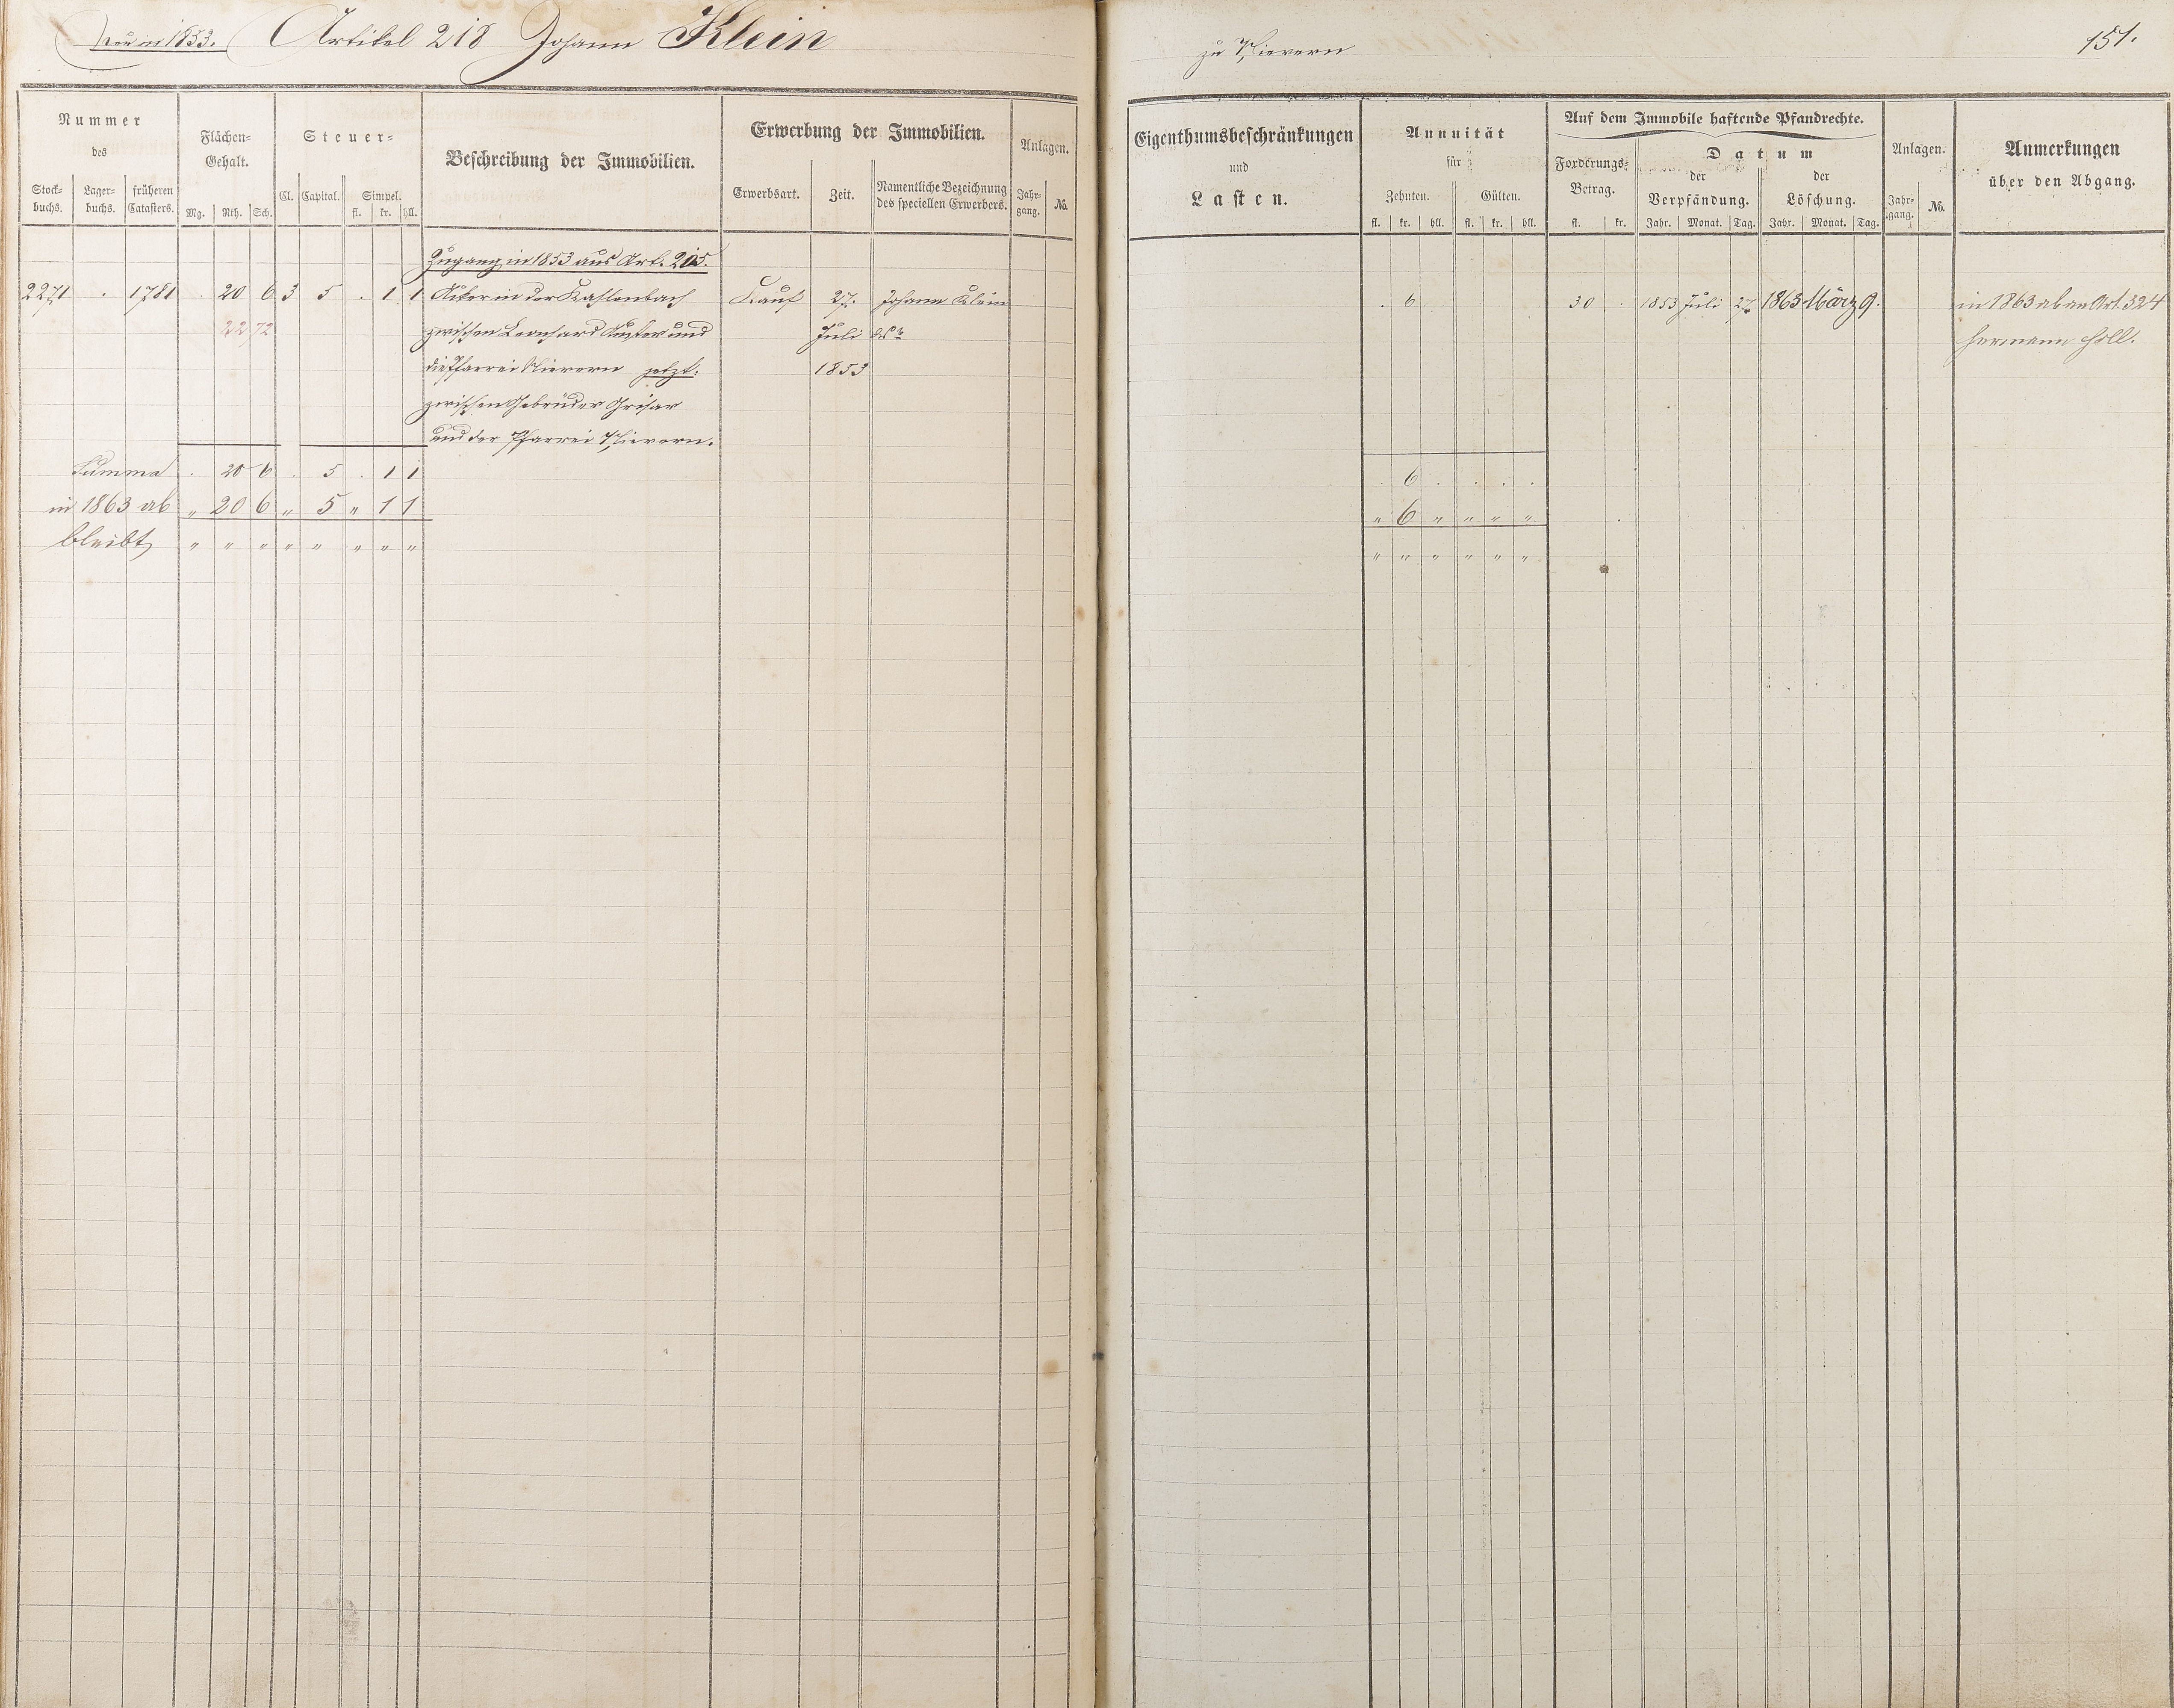 Neu in 1853. Artikel 218 Johann Klein
zu Nievern 151.
Nummer
des
Stock-
buchs.
Lager-
buchs.
früheren
Catasters.
Flächen-
Gehalt.
Mg. Rth. Sch.
Steuer-
Cl. Capital. Simpel.
fl. kr. hll.
Beschreibung der Immobilien.
Erwerbung der Immobilien.
Erwerbsart. Zeit. Namentliche Bezeichnung
des speciellen Erwerbers.
Anlagen.
Jahr-
gang. No.
Eigenthumsbeschränkungen
und
Lasten.
Annuität
für
Zehnten. Gülten.
fl. kr. hll. fl. kr. hll.
Auf dem Immobile haftende Pfandrechte.
Forderungs-
Betrag.
fl. kr.
Datum
der
Verpfändung.
Jahr. Monat. Tag.
der
Löschung.
Jahr. Monat. Tag.
Anlagen.
Jahr-
gang. No.
Anmerkungen
über den Abgang.
Zugang in 1853 aus Art. 205.
2271 . 1781 . 20 6 3 5 . 1 1 Acker in der Kahlenbach Kauf 27. Johann Klein . 6 30 . 1853 Juli 27 1863 März 9. in 1863 ab an Art. 324
22 72 zwischen Leonhard und Juli Hermann Holl.
die Pfarrei Nievern jetzt: 1853
zwischen Gebrüder Grisar
und der Pfarrei Nievern.
Summa . 20 6 . 5 . 1 1 . 6 . . . .
in 1863 ab " 20 6 " 5 " 1 1 " 6 " " " "
bleibt " " " " " " " " " " " " " "